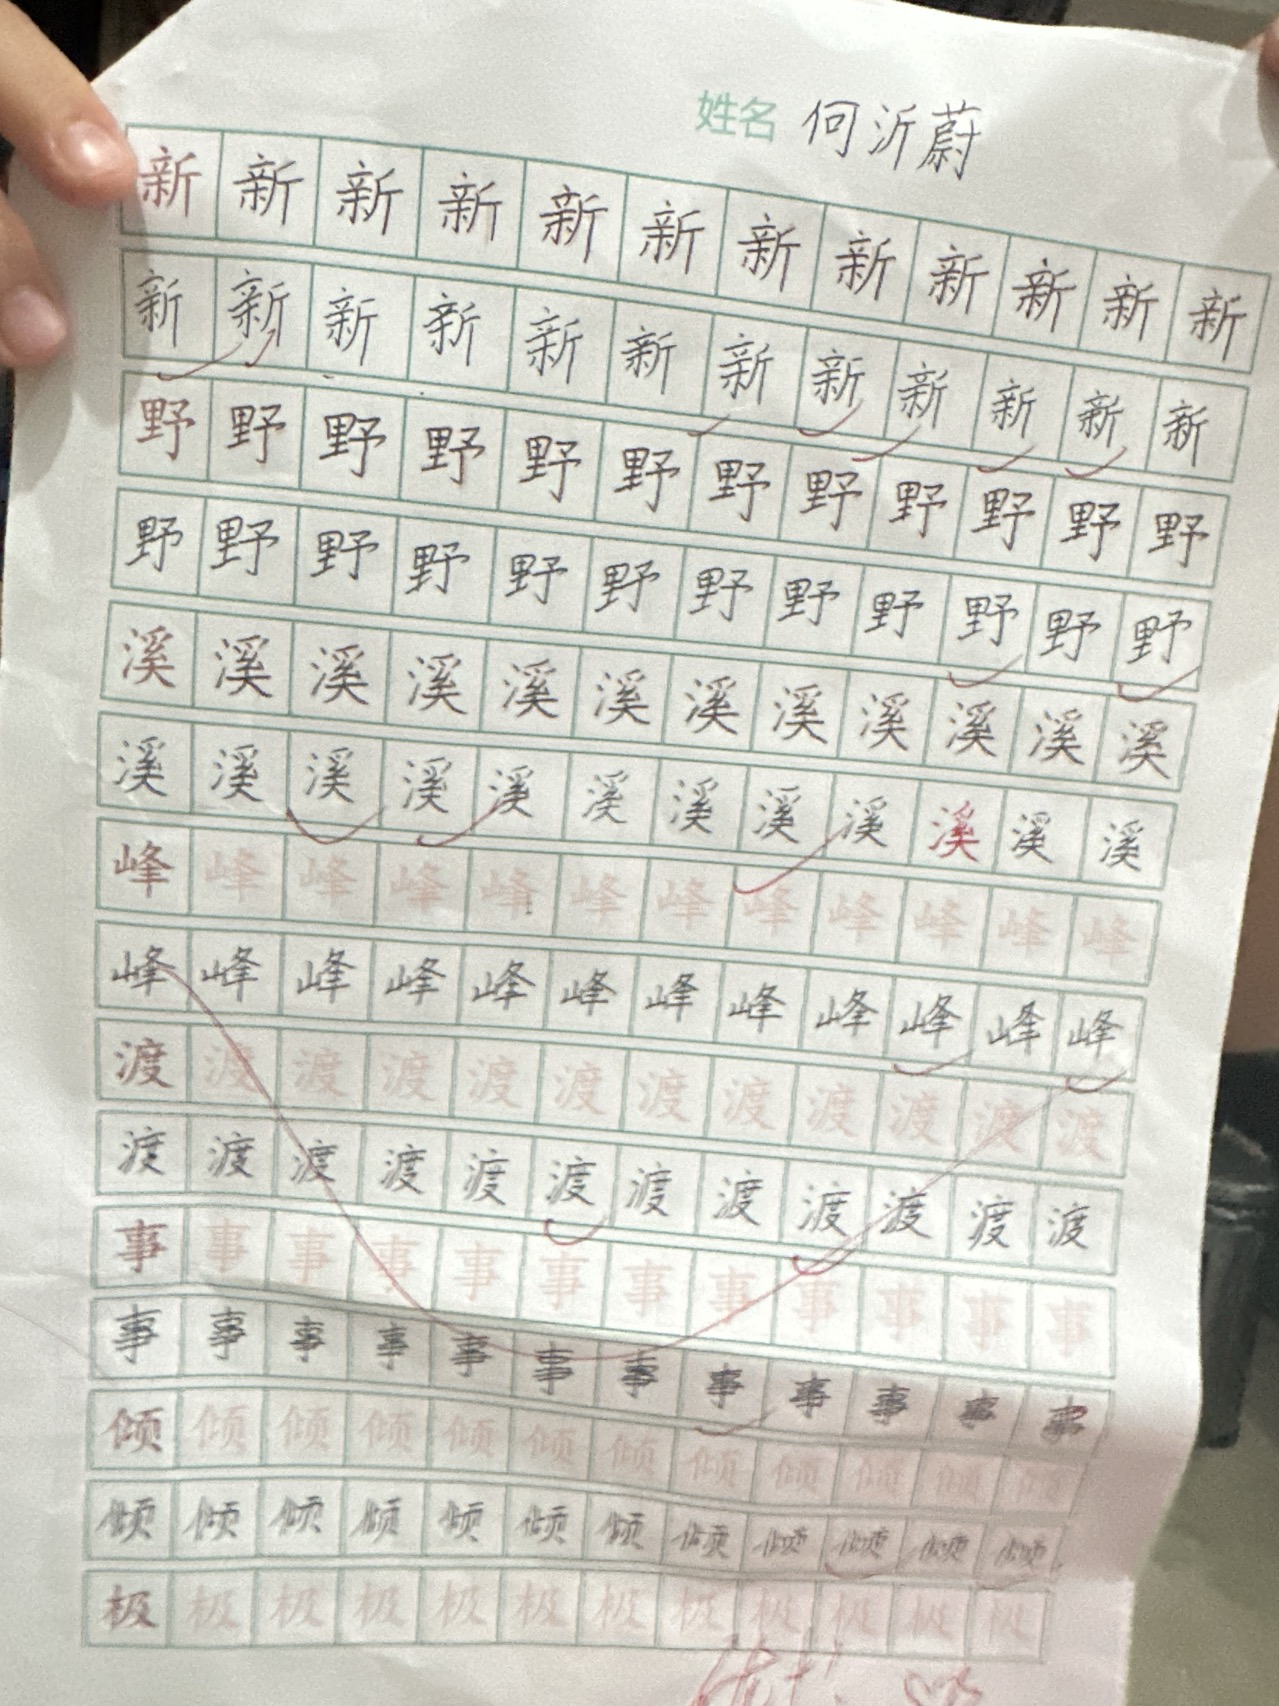 姓名 何沂蔚
新新新新新新新新新新新新
新新新新新新新新新新新新
野野野野野野野野野野野野
野野野野野野野野野野野野
溪溪溪溪溪溪溪溪溪溪溪溪
溪溪溪溪溪溪溪溪溪溪溪溪
峰峰峰峰峰峰峰峰峰峰峰峰
峰峰峰峰峰峰峰峰峰峰峰峰
渡渡渡渡渡渡渡渡渡渡渡渡
渡渡渡渡渡渡渡渡渡渡渡渡
事事事事事事事事事事事事
事事事事事事事事事事事事
倾倾倾倾倾倾倾倾倾倾倾倾
倾倾倾倾倾倾倾倾倾倾倾倾
极极极极极极极极极极极极